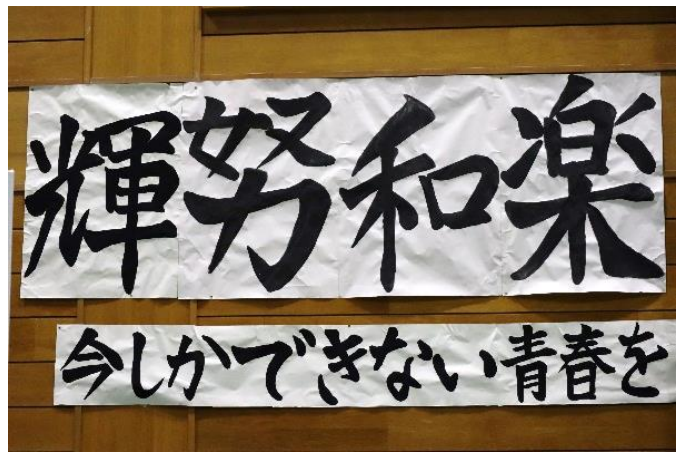 輝努和楽
今しかできない青春を